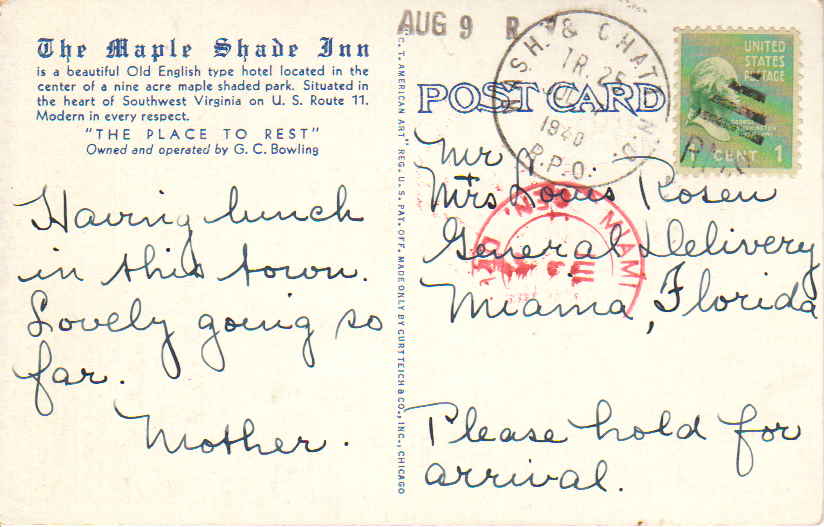 The Maple Shade Inn
is a beautiful Old English type hotel located in the
center of a nine acre maple shaded park. Situated in
the heart of Southwest Virginia on U. S. Route 11.
Modern in every respect.
"THE PLACE TO REST"
Owned and operated by G. C. Bowling
Having lunch
in this town.
Lovely going so
far.
Mother.
C. T. AMERICAN ART" REG. U. S. PAT. OFF. MADE ONLY BY CURT TEICH & CO., INC., CHICAGO
AUG 9
NASH. & CHAT
TR. 25
1940
R.P.O.
UNITED
STATES
POSTAGE
1 CENT 1
POST CARD
Mr
+
Mrs Louis Rosen
General Delivery
Miama, Florida
MIAMI
Please hold for
arrival.